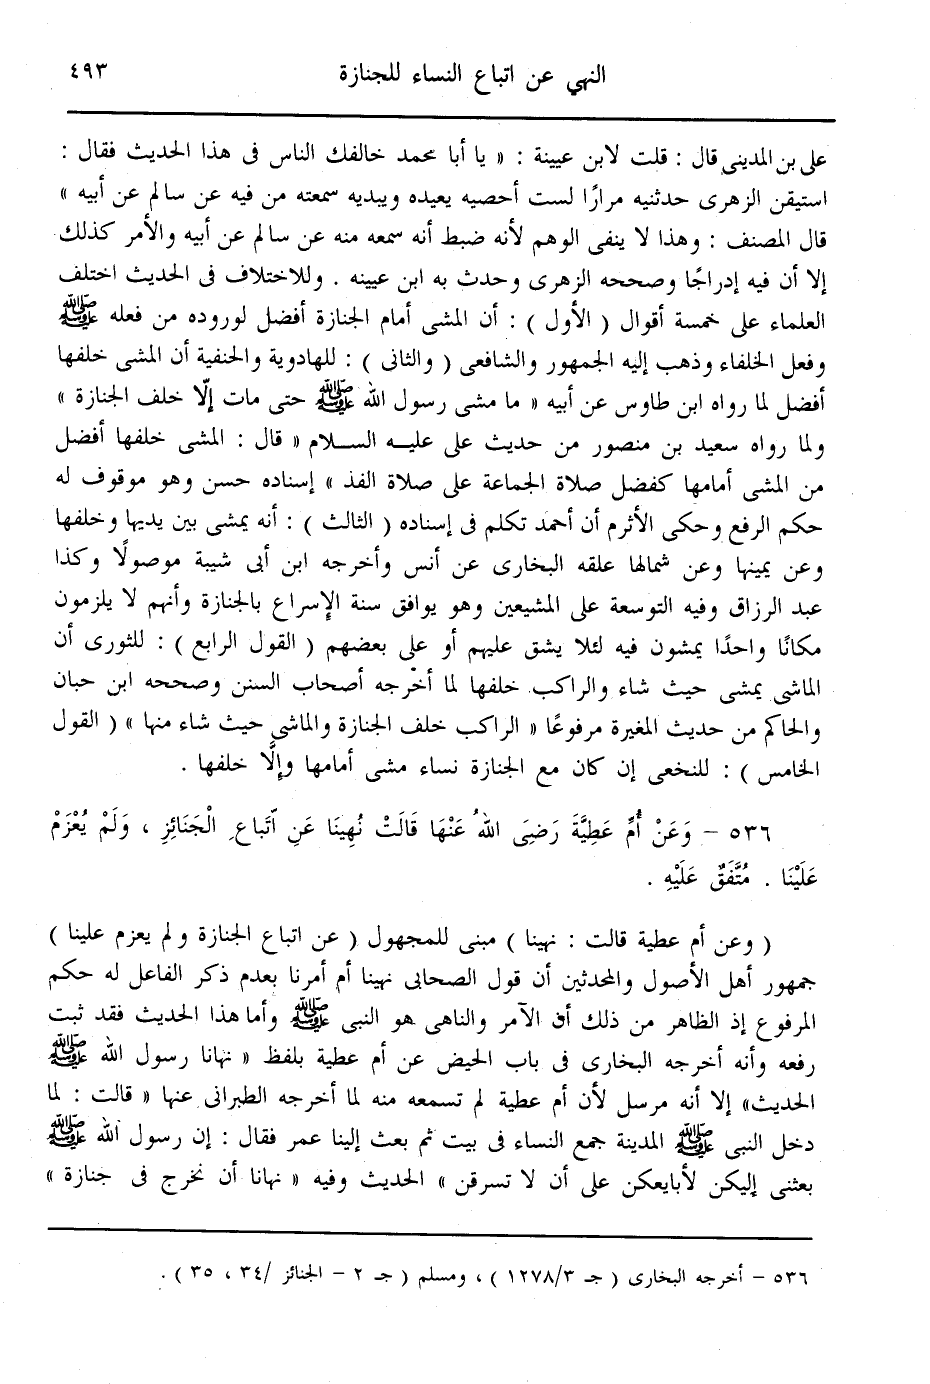 النهي عن اتباع النساء للجنازة ٤٩٣
على بن المدينى قال : قلت لابن عيينة : « يا أبا محمد خالفك الناس فى هذا الحديث فقال :
استيقن الزهرى حدثنيه مرارًا لست أحصيه يعيده ويبديه سمعته من فيه عن سالم عن أبيه »
قال المصنف : وهذا لا ينفى الوهم لأنه ضبط أنه سمعه منه عن سالم عن أبيه والأمر كذلك
إلا أن فيه إدراجًا وصححه الزهرى وحدث به ابن عيينه . وللاختلاف فى الحديث اختلف
العلماء على خمسة أقوال ( الأول ) : أن المشى أمام الجنازة أفضل لوروده من فعله ﷺ
وفعل الخلفاء وذهب إليه الجمهور والشافعى ( والثانى ) : للهادوية والحنفية أن المشى خلفها
أفضل لما رواه ابن طاوس عن أبيه « ما مشى رسول الله ﷺ حتى مات إلّا خلف الجنازة »
ولما رواه سعيد بن منصور من حديث على عليه السلام « قال : المشى خلفها أفضل
من المشى أمامها كفضل صلاة الجماعة على صلاة الفذ » إسناده حسن وهو موقوف له
حكم الرفع وحكى الأثرم أن أحمد تكلم فى إسناده ( الثالث ) : أنه يمشى بين يديها وخلفها
وعن يمينها وعن شمالها علقه البخارى عن أنس وأخرجه ابن أبى شيبة موصولًا وكذا
عبد الرزاق وفيه التوسعة على المشيعين وهو يوافق سنة الإسراع بالجنازة وأنهم لا يلزمون
مكانًا واحدًا يمشون فيه لئلا يشق عليهم أو على بعضهم ( القول الرابع ) : للثورى أن
الماشى يمشى حيث شاء والراكب خلفها لما أخرجه أصحاب السنن وصححه ابن حبان
والحاكم من حديث المغيرة مرفوعًا « الراكب خلف الجنازة والماشى حيث شاء منها » ( القول
الخامس ) : للنخعى إن كان مع الجنازة نساء مشى أمامها وإلَّا خلفها .
٥٣٦ – وَعَنْ أُمِّ عَطِيَّةَ رَضِىَ اللهُ عَنْهَا قَالَتْ نُهِينَا عَنِ اتَّباعِ الْجَنَائِزِ ، وَلَمْ يُعْزَمْ
عَلَيْنَا . مُتَّفَقٌ عَلَيْهِ .
( وعن أم عطية قالت : نهينا ) مبنى للمجهول ( عن اتباع الجنازة ولم يعزم علينا )
جمهور أهل الأصول والمحدثين أن قول الصحابى نهينا أم أمرنا بعدم ذكر الفاعل له حكم
المرفوع إذ الظاهر من ذلك أن الآمر والناهى هو النبى ﷺ وأما هذا الحديث فقد ثبت
رفعه وأنه أخرجه البخارى فى باب الحيض عن أم عطية بلفظ « نهانا رسول الله ﷺ
الحديث» إلا أنه مرسل لأن أم عطية لم تسمعه منه لما أخرجه الطبرانى عنها « قالت : لما
دخل النبى ﷺ المدينة جمع النساء فى بيت ثم بعث إلينا عمر فقال : إن رسول الله ﷺ
بعثنى إليكن لأبايعكن على أن لا تسرقن » الحديث وفيه « نهانا أن نخرج فى جنازة »
٥٣٦ – أخرجه البخارى ( جـ ١٢٧٨/٣ ) ، ومسلم ( جـ ٢ – الجنائز /٣٤ ، ٣٥ ) .